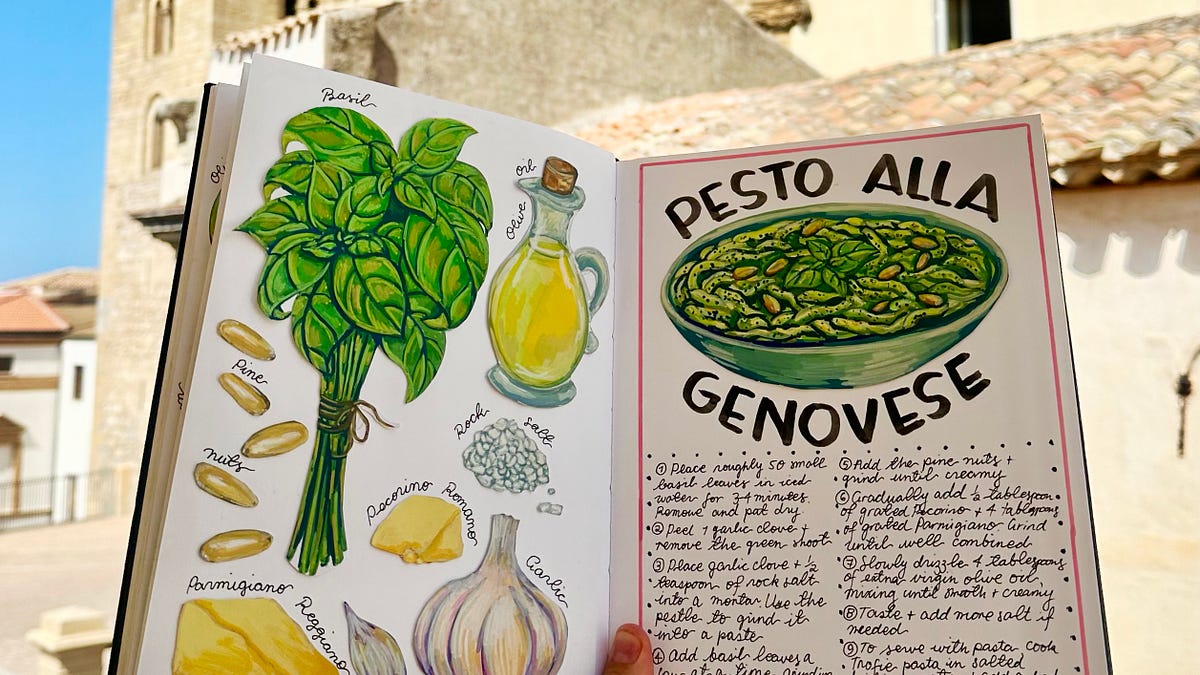 Basil
Olive oil
Pine
nuts
Rock salt
Pecorino Romano
Garlic
Parmigiano
Reggiano
PESTO ALLA
GENOVESE
① Place roughly 50 small
basil leaves in iced
water for 3-4 minutes.
Remove and pat dry.
② Peel 1 garlic clove +
remove the green shoot.
③ Place garlic clove + ½
teaspoon of rock salt
into a mortar. Use the
pestle to grind it
into a paste
④ Add basil leaves a
at a time, grinding
⑤ Add the pine nuts +
grind until creamy
⑥ Gradually add ½ tablespoon
of grated Pecorino + 4 tablespoons
of grated Parmigiano. Grind
until well combined
⑦ Slowly drizzle 4 tablespoons
of extra virgin olive oil,
mixing until smooth + creamy
⑧ Taste + add more salt if
needed
⑨ To serve with pasta, cook
Trofie pasta in salted